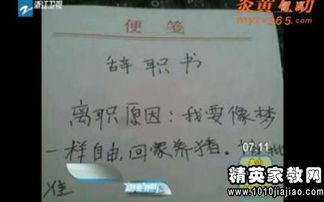 浙江卫视
炎黄互动
mytv365.com
便笺
辞职书
离职原因：我要像梦
一样自由，回家养猪。
07:11
准
精英家教网
www.1010jiajiao.com